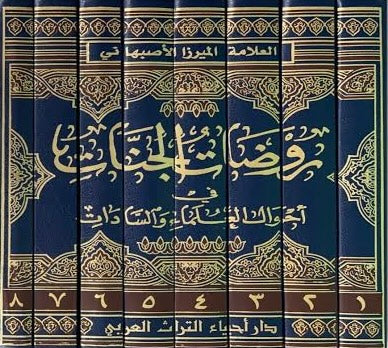 العلامة الميرزا الأصبهاني
روضات الجنات
في
أحوال العلماء والسادات
٨ ٧ ٦ ٥ ٤ ٣ ٢ ١
دار أحياء التراث العربي